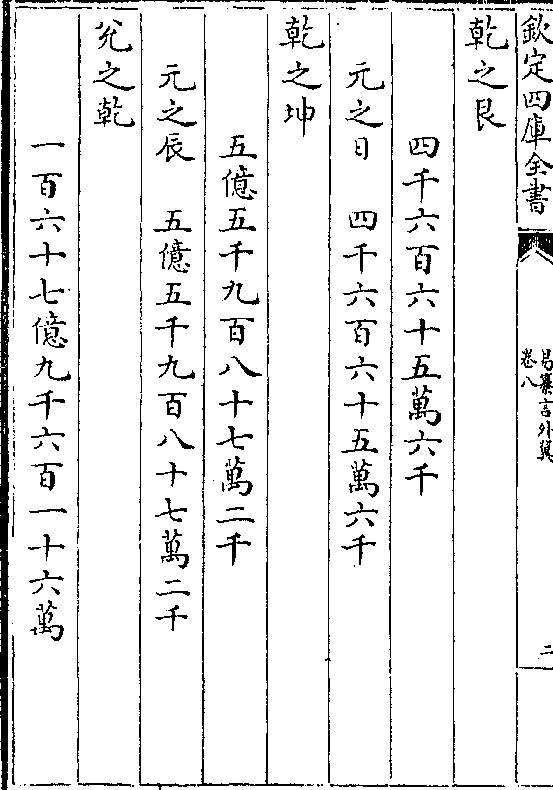 欽定四庫全書
易纂言外翼
卷八
二
乾之艮
四千六百六十五萬六千
元之日　四千六百六十五萬六千
乾之坤
五億五千九百八十七萬二千
元之辰　五億五千九百八十七萬二千
兊之乾
一百六十七億九千六百一十六萬